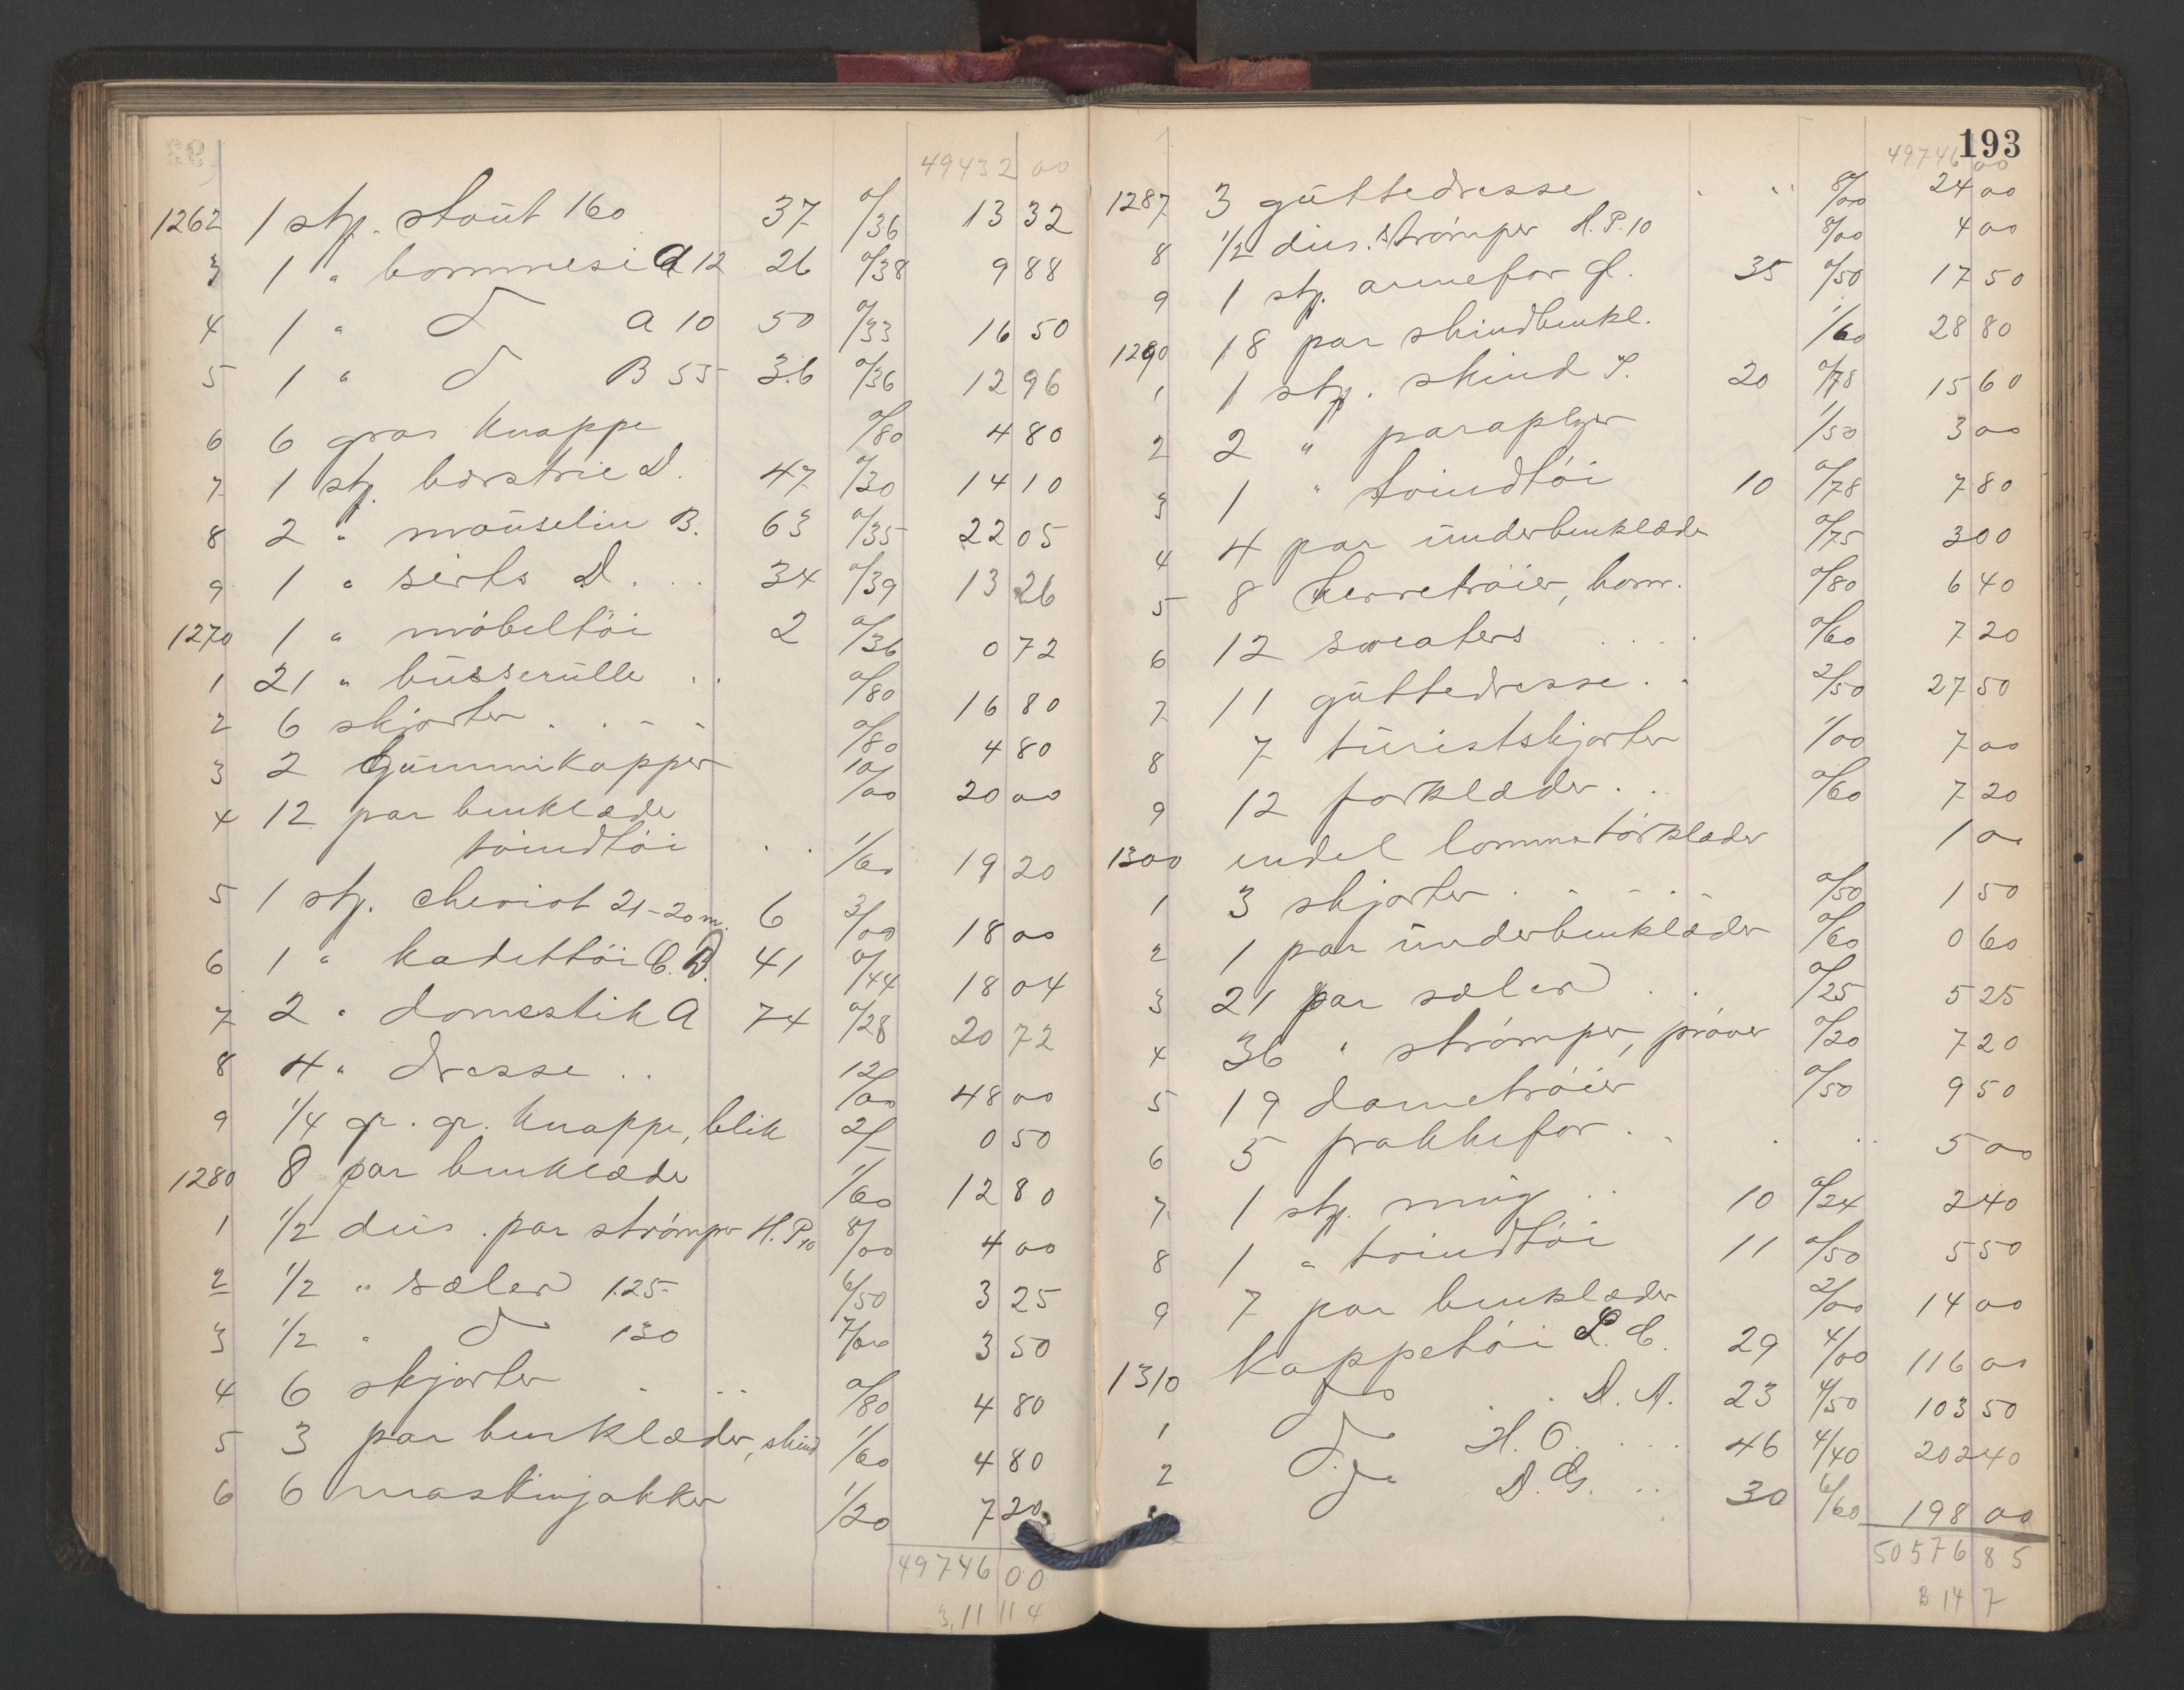 49432 00
1262 1 stk. stout 160 37 0/36 13 32
3 1 " bommesi A 12 26 0/38 9 88
4 1 " do A 10 50 0/33 16 50
5 1 " do B 55 36 0/36 12 96
6 6 gros knappe 0/80 4 80
7 1 stk. borstrie D. 47 0/30 14 10
8 2 " mouselin B. 63 0/35 22 05
9 1 " sirts D. . . 34 0/39 13 26
1270 1 " möbeltöi 2 0/36 0 72
1 21 " busserulle . . 0/80 16 80
2 6 skjorter . . - - 0/80 4 80
3 2 Gummikapper 10/00 20 00
4 12 par benklæde
tvindtöi . . 1/60 19 20
5 1 stk. cheviot 21-20 m. 6 3/00 18 00
6 1 " kadettöi C. D. 41 0/44 18 04
7 2 " domestik A 74 0/28 20 72
8 4 " dresse . . 12/00 48 00
9 1/4 gr. gr. knappe, blik 2/- 0 50
1280 8 par benklæde 1/60 12 80
1 1/2 dus. par strömper H. P. 10 8/00 4 00
2 1/2 " sæler 125 6/50 3 25
3 1/2 " do 130 7/00 3 50
4 6 skjorter . . . 0/80 4 80
5 3 par benklæder, skind 1/60 4 80
6 6 maskinjakker 1/20 7 20
49746 00
3,11 11 4
193
49746 00
1287 3 guttedresse . . . 8/00 24 00
8 1/2 dus. strömper H. P. 10 8/00 4 00
9 1 stk. armefor 35 0/50 17 50
1290 18 par skindbenkl. 1/60 28 80
1 1 stk. skind 20 0/78 15 60
2 2 " paraplyer 1/50 3 00
3 1 " tvindtöi 10 0/78 7 80
4 4 par underbenklæde 0/75 3 00
5 8 herretröier, bom. 0/80 6 40
6 12 sweaters . . . . 0/60 7 20
7 11 guttedresse . . 2/50 27 50
8 7 turistskjorter 1/00 7 00
9 12 forklæder . . 0/60 7 20
1300 endel lommetörklæder 1 00
1 3 skjorter . - - . - 0/50 1 50
2 1 par underbenklæder 0/60 0 60
3 21 par sæler . . 0/25 5 25
4 36 " strömper, pröver 0/20 7 20
5 19 dametröier 0/50 9 50
6 5 frakkefor . . . . . 5 00
7 1 stk. mug . . 10 0/24 2 40
8 1 " tvindtöi 11 0/50 5 50
9 7 par benklæder 2/00 14 00
1310 kappetöi L. C. 29 4/00 116 00
do . . D. A. 23 4/50 103 50
1 do H. O. . . . 46 4/40 202 40
2 do D. G. . . 30 6/60 198 00
50576 85
B 14 7